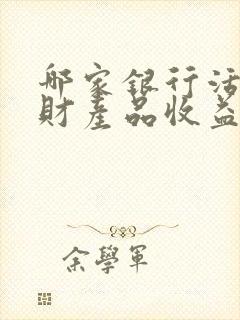 那家銀行活
財產品收益
余學軍